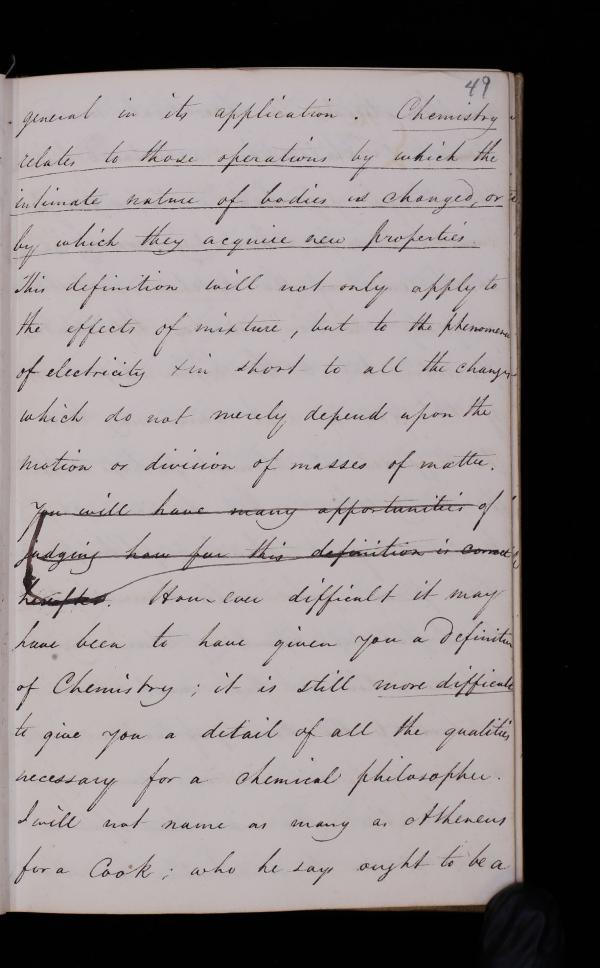 49
general in its application. Chemistry
relates to those operations by which the
intimate nature of bodies is changed, or
by which they acquire new properties.
This definition will not only apply to
the effects of mixture, but to the phenomena
of electricity & in short to all the changes
which do not merely depend upon the
motion or division of masses of matter.
You will have many opportunities of
judging how far this definition is correct
hereafter. However difficult it may
have been to have given you a Definition
of Chemistry; it is still more difficult
to give you a detail of all the qualities
necessary for a chemical philosopher.
I will not name as many as Atheneus
for a Cook; who he says ought to be a